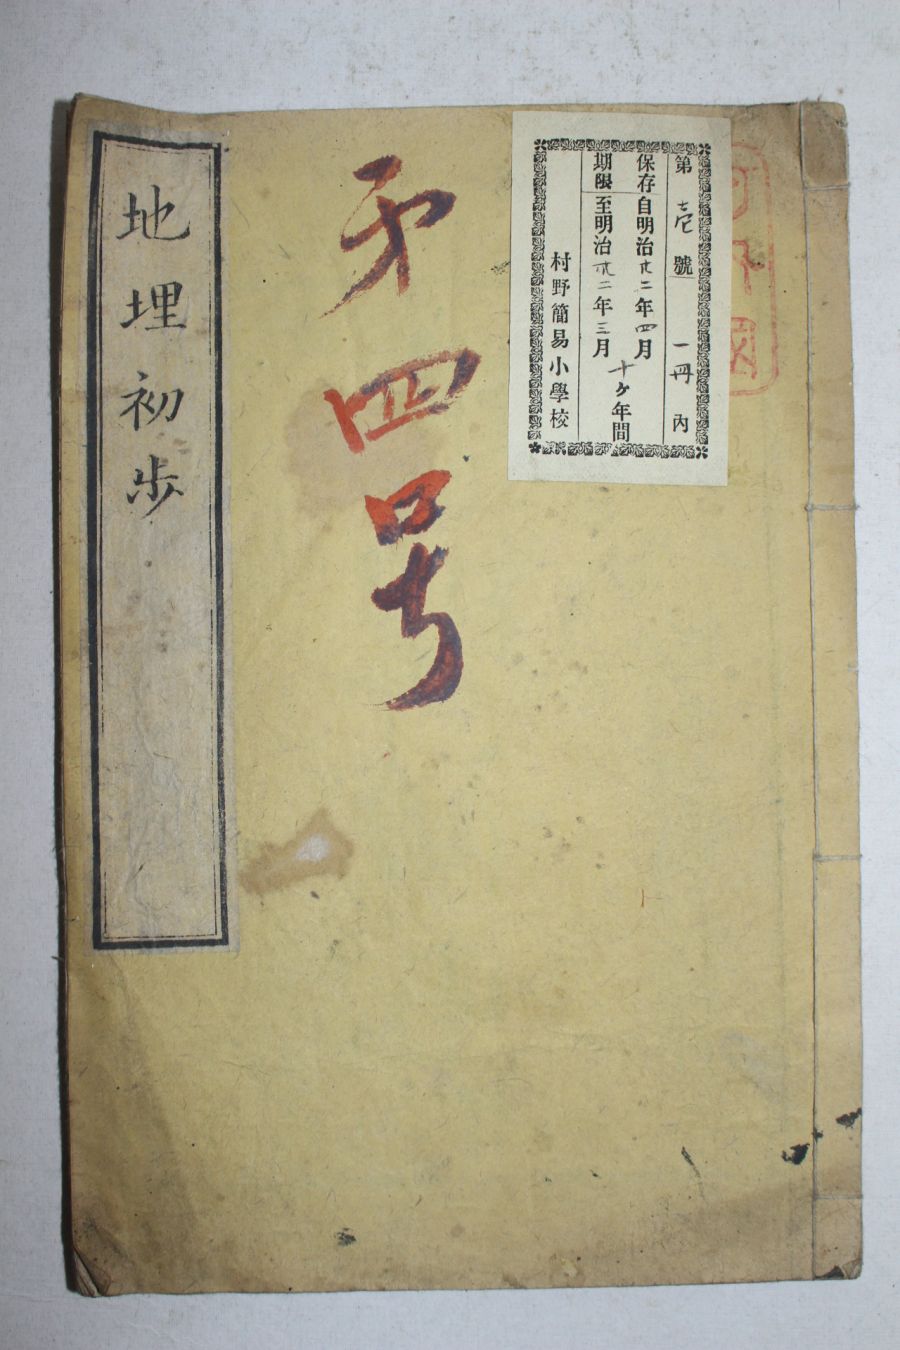 第壱號 一冊内
保存 自明治廿二年四月
期限 至明治卅二年三月
十ヶ年間
村野簡易小學校
㐧四号
地埋初步